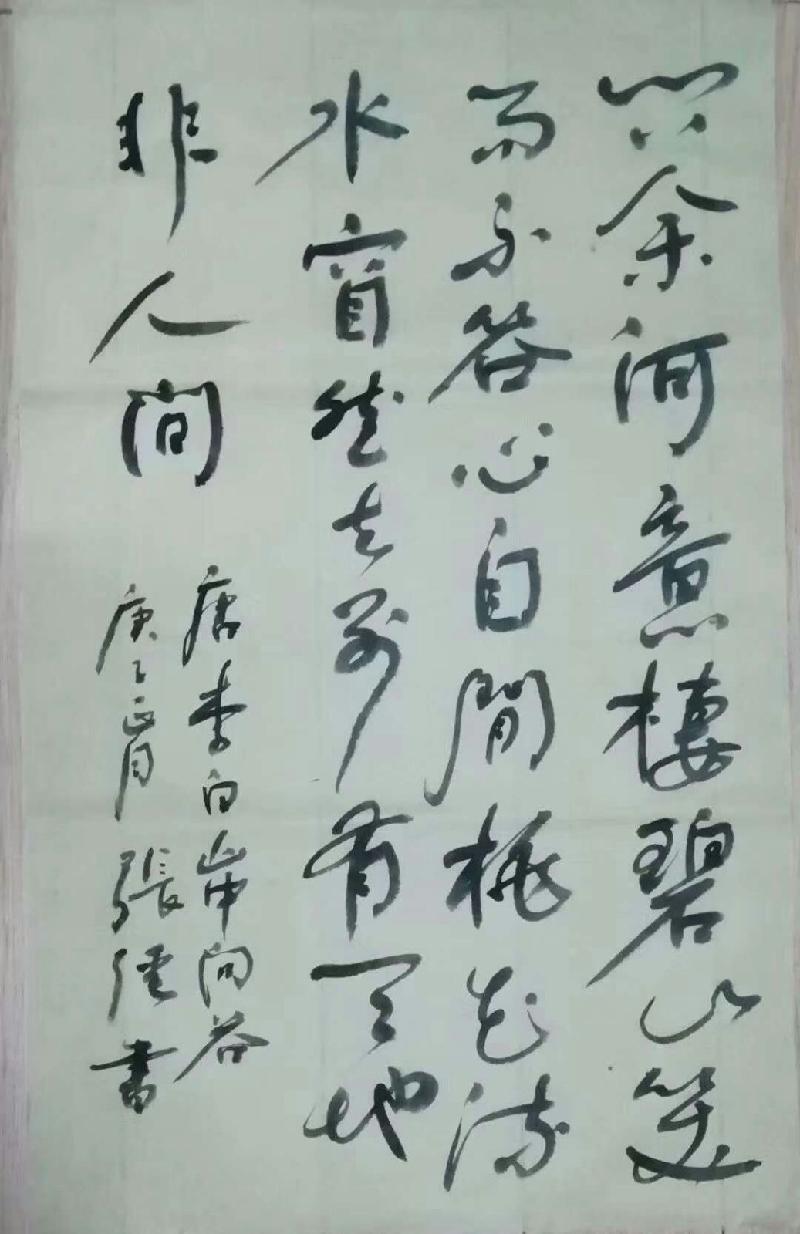 問余何意棲碧山笑
而不答心自閒桃花流
水窅然去別有天地
非人間
唐李白山中問答
庚子正月張書